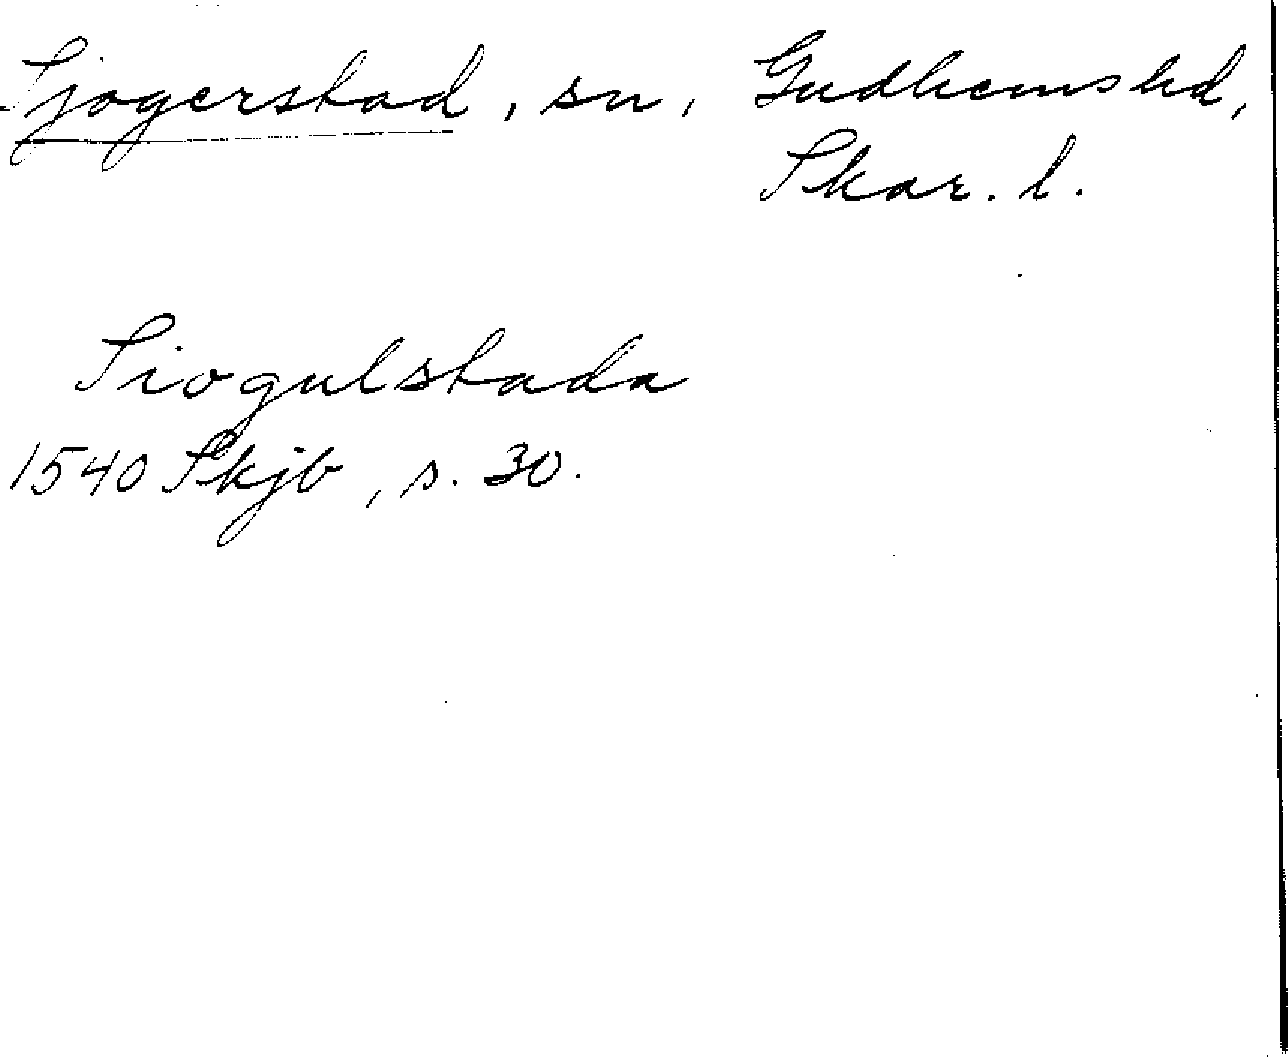 Sjogerstad, sn, Gudhems hd,
Skar. l.
Siogulstada
1540 Skjb, s. 30.